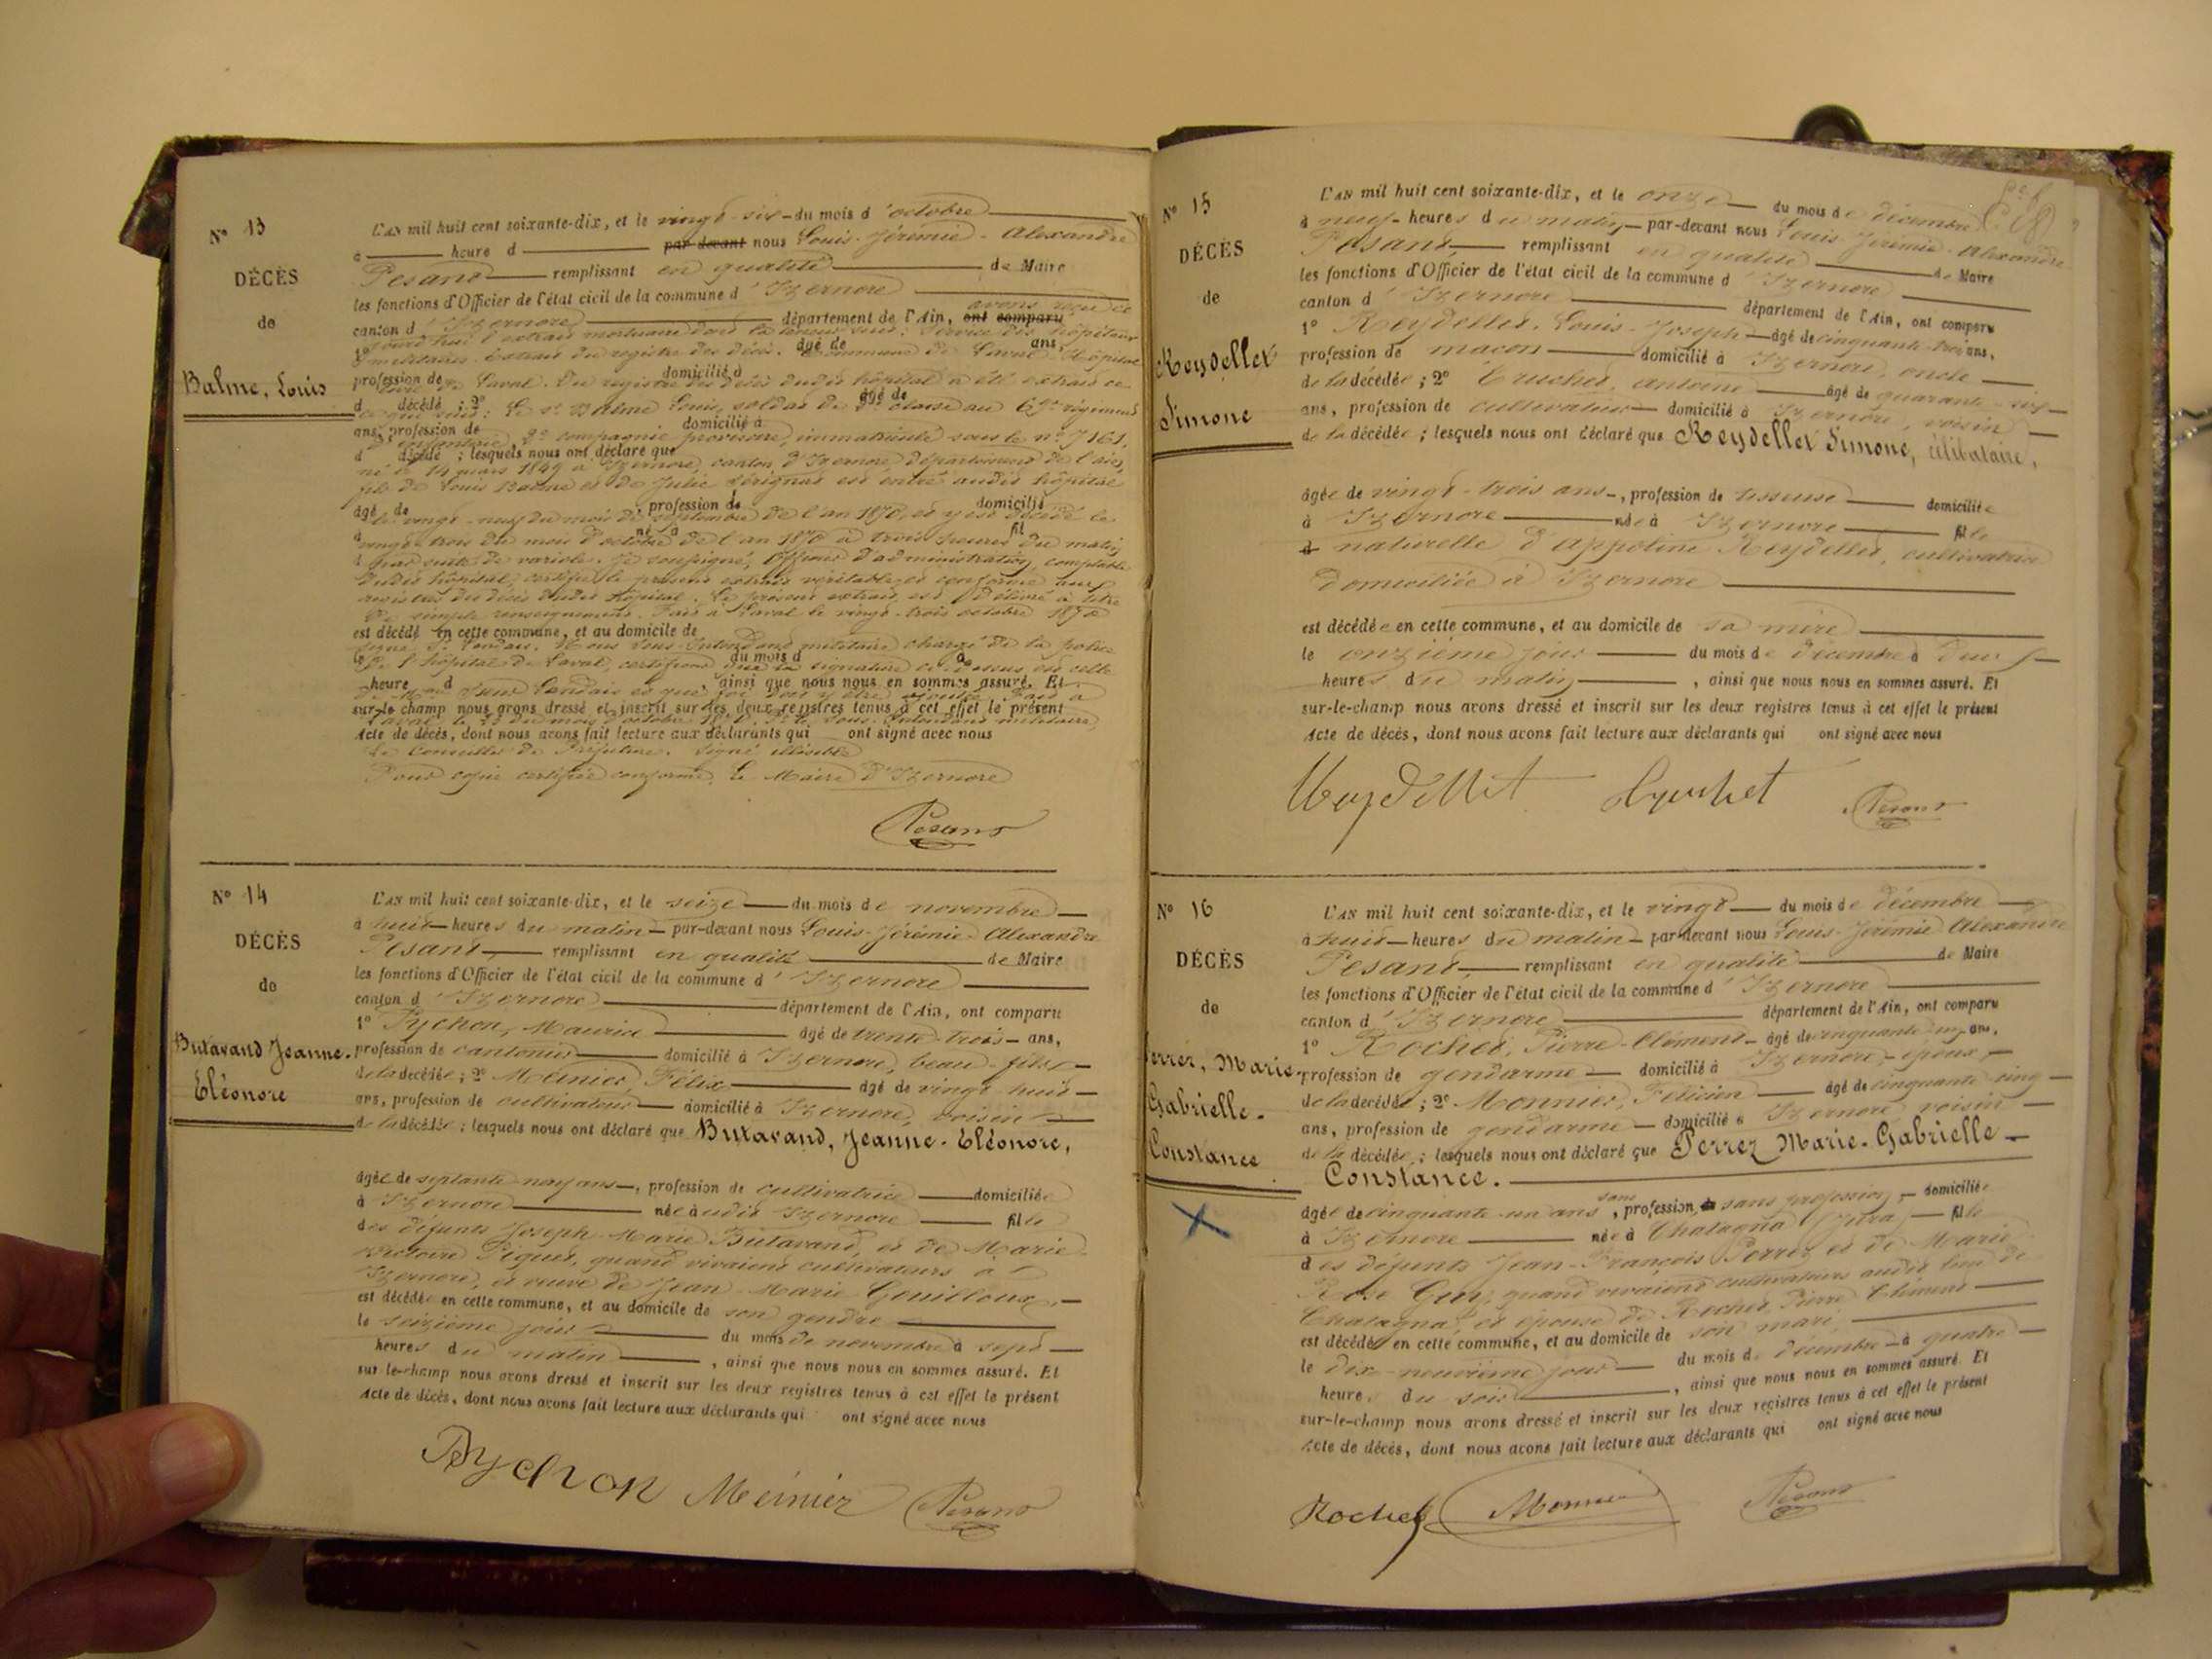 N° 13
DÉCÈS
de
Balme, Louis
L'AN mil huit cent soixante-dix, et le vingt-six du mois d'octobre
à heure d par-devant nous Louis-Jérémie-Alexandre
Pesant remplissant en qualité de Maire
les fonctions d'Officier de l'état civil de la commune d'Izernore
avons reçu ce
canton d'Izernore département de l'Ain, ont comparu
jourd'hui l'extrait mortuaire dont la teneur suit : Service des hôpitaux
1° âgé de ans,
militaires. Extrait du registre des décès. Commune de Laval. Hôpital
profession de domicilié à
de Laval. Du registre des décès dudit hôpital a été extrait ce
d décédé ; 2° âgé de
qui suit : Le sr Balme Louis, soldat de 2e classe au régiment
ans, profession de domicilié à
d'infanterie, 2e compagnie provisoire, immatriculé sous le n° 7161,
d décédé ; lesquels nous ont déclaré que
né le 14 mars 1849 à Izernore, canton d'Izernore, département de l'Ain,
fils de Louis Balme et de Julie Sérignat est entré audit hôpital
âgé de , profession de domicilié
le vingt-neuf du mois de septembre de l'an 1870, et y est décédé le
à né à fil
vingt-trois du mois d'octobre de l'an 1870 à trois heures du matin
d par suite de variole. Je soussigné, Officier d'administration, comptable
dudit hôpital, certifie le présent extrait véritable et conforme aux
registres des décès dudit hôpital. Le présent extrait est délivré à titre
de simple renseignement. Fait à Laval le vingt-trois octobre 1870
est décédé en cette commune, et au domicile de
signé : Landais. Nous Sous-Intendant militaire chargé de la police
le du mois d à
de l'hôpital de Laval, certifions que la signature ci-dessus est celle
heure d , ainsi que nous nous en sommes assuré. Et
de Sieur Landais et que foi doit y être ajoutée. Fait à
sur-le-champ nous avons dressé et inscrit sur les deux registres tenus à cet effet le présent
Laval, le 23 du mois d'octobre 1870. Sous-Intendant militaire,
Acte de décès, dont nous avons fait lecture aux déclarants qui ont signé avec nous
Le Conseiller de Préfecture. Signé illisible
Pour copie certifiée conforme, Le Maire d'Izernore
Pesant
N° 14
DÉCÈS
de
Butavand Jeanne-
Eléonore
L'AN mil huit cent soixante-dix, et le seize du mois de novembre
à huit heures du matin par-devant nous Louis-Jérémie-Alexandre
Pesant remplissant en qualité de Maire
les fonctions d'Officier de l'état civil de la commune d'Izernore
canton d'Izernore département de l'Ain, ont comparu
1° Pychon, Maurice âgé de trente-trois ans,
profession de cantonnier domicilié à Izernore, beau-fils
de la décédée ; 2° Meinier, Félix âgé de vingt-huit
ans, profession de cultivateur domicilié à Izernore, voisin
de la décédée ; lesquels nous ont déclaré que Butavand, Jeanne-Eléonore,
âgée de septante neuf ans, profession de cultivatrice domiciliée
à Izernore née audit Izernore fille
des défunts Joseph-Marie Butavand, et de Marie
Victoire Piquet, quand vivaient cultivateurs à
Izernore, et veuve de Jean-Marie Gouilloux,
est décédée en cette commune, et au domicile de son gendre
le seizième jour du mois de novembre à sept
heures du matin , ainsi que nous nous en sommes assuré. Et
sur-le-champ nous avons dressé et inscrit sur les deux registres tenus à cet effet le présent
Acte de décès, dont nous avons fait lecture aux déclarants qui ont signé avec nous
Pychon Meinier Pesant
N° 15
DÉCÈS
de
Reydellet
Simone
L'AN mil huit cent soixante-dix, et le onze du mois de décembre
à neuf heures du matin par-devant nous Louis-Jérémie-Alexandre
Pesant remplissant en qualité de Maire
les fonctions d'Officier de l'état civil de la commune d'Izernore
canton d'Izernore département de l'Ain, ont comparu
1° Reydellet, Louis-Joseph âgé de cinquante-trois ans,
profession de maçon domicilié à Izernore, oncle
de la décédée ; 2° Truchet, Antoine âgé de quarante-six
ans, profession de cultivateur domicilié à Izernore, voisin
de la décédée ; lesquels nous ont déclaré que Reydellet Simone, célibataire,
âgée de vingt-trois ans, profession de tisseuse domiciliée
à Izernore née à Izernore fille
d naturelle d'Appoline Reydellet, cultivatrice
domiciliée à Izernore
est décédée en cette commune, et au domicile de sa mère
le onzième jour du mois de décembre à deux
heures du matin , ainsi que nous nous en sommes assuré. Et
sur-le-champ nous avons dressé et inscrit sur les deux registres tenus à cet effet le présent
Acte de décès, dont nous avons fait lecture aux déclarants qui ont signé avec nous
Reydellet Truchet Pesant
N° 16
DÉCÈS
de
Perrez, Marie-
Gabrielle-
Constance
L'AN mil huit cent soixante-dix, et le vingt du mois de décembre
à huit heures du matin par-devant nous Louis-Jérémie Alexandre
Pesant, remplissant en qualité de Maire
les fonctions d'Officier de l'état civil de la commune d'Izernore
canton d'Izernore département de l'Ain, ont comparu
1° Rochet, Pierre-Clément âgé de cinquante-un ans,
profession de gendarme domicilié à Izernore, époux
de la décédée ; 2° Monnier, Félicien âgé de cinquante cinq
ans, profession de gendarme domicilié à Izernore voisin
de la décédée ; lesquels nous ont déclaré que Perrez Marie-Gabrielle-
Constance.
âgée de cinquante-un ans, sans profession, de sans profession, domiciliée
à Izernore née à Chatagna (Jura) fille
des défunts Jean-François Perrez et de Marie
Rose Guy, quand vivaient cultivateurs audit lieu de
Chatagna, et épouse de Rochet Pierre Clément
est décédée en cette commune, et au domicile de son mari,
le dix-neuvième jour du mois de décembre à quatre
heures du soir , ainsi que nous nous en sommes assuré. Et
sur-le-champ nous avons dressé et inscrit sur les deux registres tenus à cet effet le présent
Acte de décès, dont nous avons fait lecture aux déclarants qui ont signé avec nous
Rochet Monnier Pesant